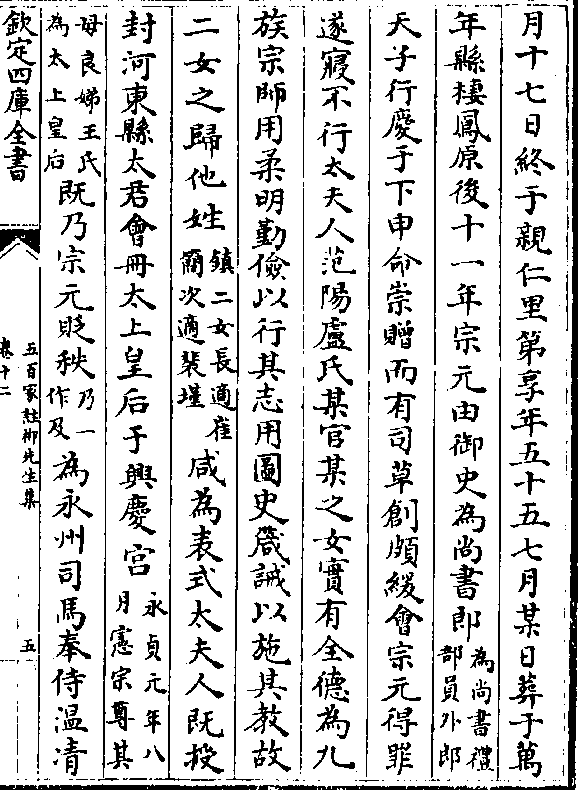 月十七日終于親仁里第享年五十五七月某日葬于萬
年縣棲鳳原後十一年宗元由御史為尚書郎為尚書禮部員外郎
天子行慶于下申命崇贈而有司草創頗緩會宗元得罪
遂寢不行太夫人范陽盧氏某官某之女實有全德為九
族宗師用柔明勤儉以行其志用圖史箴誡以施其教故
二女之歸他姓鎮二女長適崔簡次適裴墐咸為表式太夫人既授
封河東縣太君會冊太上皇后于興慶宮永貞元年八月憲宗尊其
母良娣王氏為太上皇后既乃宗元貶秩乃一作及為永州司馬奉侍温凊
欽定四庫全書
五百家註柳先生集
卷十二
五